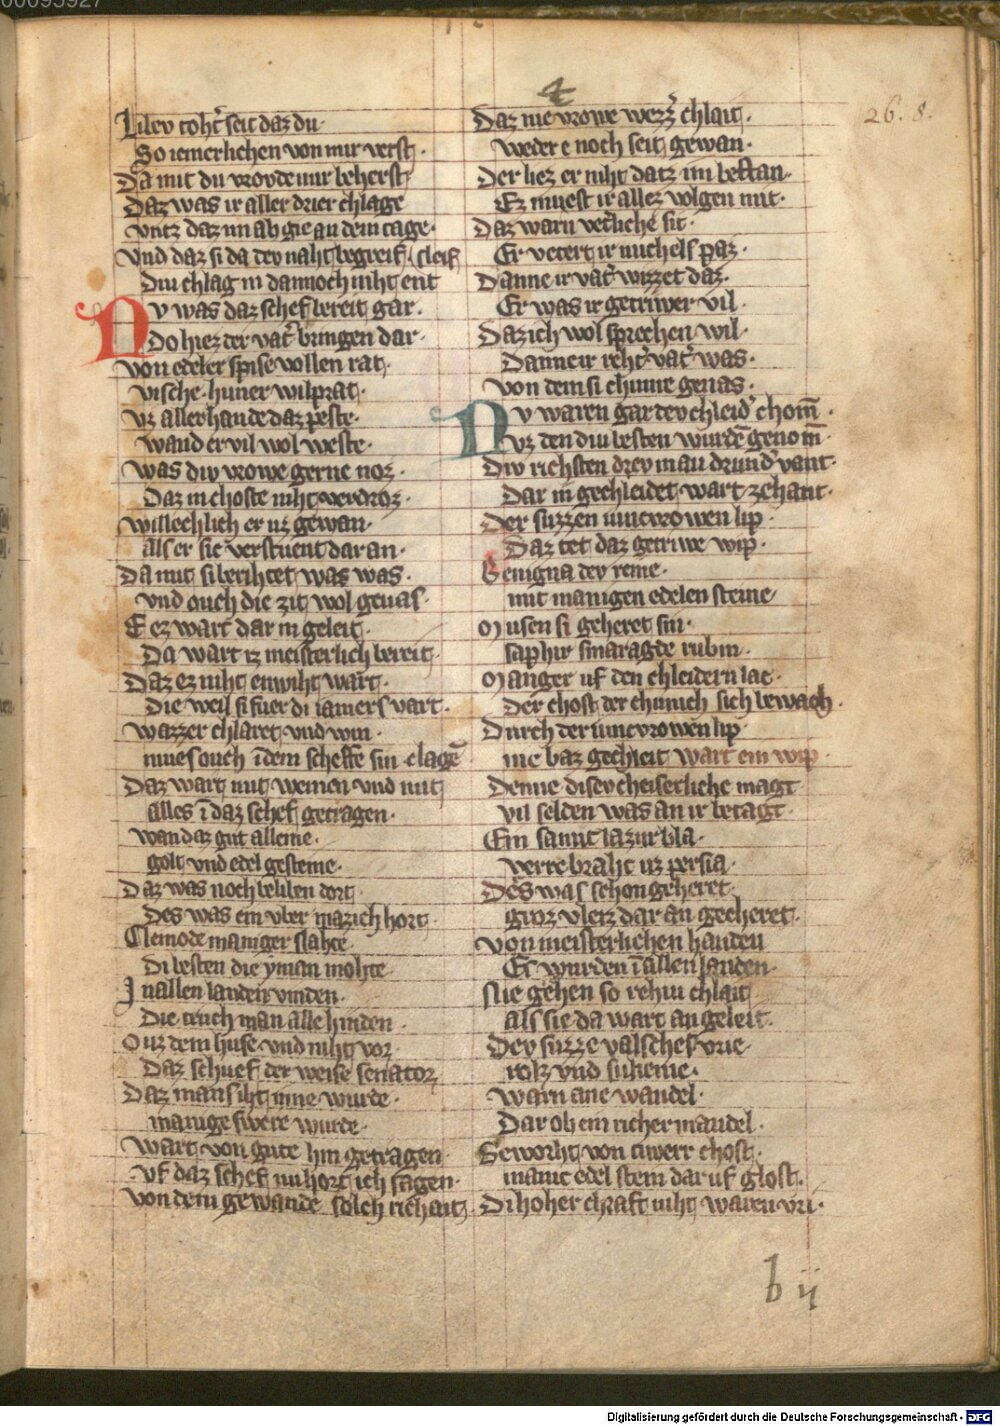 00095927
4
26. 8.
Lilev toht̓ seit daz du·
So iemerlichen von mir verst·
Da mit du vrovde mir beherst
Daz was ir aller drier chlage
vntz daz im ab gie an dem tage·
Vnd daz si da dev naht begreif· sleif
Diu chlag in dannoch niht ent
Nv was daz schef bereit gar·
Do hiez der vat̓ bringen dar·
von edeler spise vollen rat·
vische·huner wilprat·
vz allerhande daz peste·
wand er vil wol weste·
was div vrowe gerne noz·
Daz in choste niht verdroz·
willechlich er uz gewan·
als er sie verstuent dar an·
Da mit si berihtet was was·
vnd ouch die zit wol genas·
E ez wart dar in geleit·
Da wart iz meisterlich bereit·
Daz ez niht enwiht wart·
Die weil si fuer di iamers vart·
wazzer chlaret vnd win·
mues ouch ī dem scheffe sin· chlagē
Daz wart mit weinen vnd mit
alles ī daz schef getragen·
wan daz gut alleine·
golt vnd edel gesteine·
Daz was noch beliben dort·
Des was ein vber mazich hort·
Cleinode maniger slahte·
Di besten die yman mohte·
In allen landen vinden·
Die truch man alle hinden·
Ouz dem huse vnd niht vor·
Daz schuef der weise senator
Daz mans iht inne wurde·
manige swere wurde·
wart von gute hin getragen·
vf daz schef nu hort ich sagen·
von dem gewande solch richait
Daz nie vrowe werz̓ chlait·
weder e noch seit gewan·
Der liez er niht datz im bestan·
Ez muest ir allez volgen mit·
Daz warn veterliche sit·
Er vetert ir michels paz·
Danne ir vat̓ wizzet daz·
Er was ir getriwer vil·
Daz ich wol sprechen wil·
Danne ir reht̓ vat̓ was·
von dem si chume genas·
Nv waren gar dev chleid̓ chom̄·
vz den diu besten wurdē genom̄·
Div richsten drev man drund̓ vant·
Dar in gechleidet wart zehant·
Der suzzen iuncvrowen lip·
Daz tet daz getriwe wip·
Benigna dev reine·
mit manigen edelen steine
Musen si geheret sin·
saphir smaragde rubin·
Manger uf den chleidern lac·
Der chost der chunich sich bewach·
Durch der iuncvrowen lip·
nie baz gechleit wart ein wip·
Denne disev cheiserliche magt
vil selden was an ir betagt·
Ein samit lazur bla·
verre braht uz persia·
Des was schon geheret·
groz vleiz dar an gecheret·
von meisterlichen handen
Ez wurden ī allen landen·
Nie gesehen so rehiu chlait
als sie da wart an geleit·
Dev suzze valsches vrie·
rok vnd suhenie·
warn ane wandel·
Dar ob ein richer mandel·
Geworht von tiwerr chost·
manic edel stein dar uf glost·
Di hoher chraft niht waren vri·
b ij
Digitalisierung gefördert durch die Deutsche Forschungsgemeinschaft - DFG